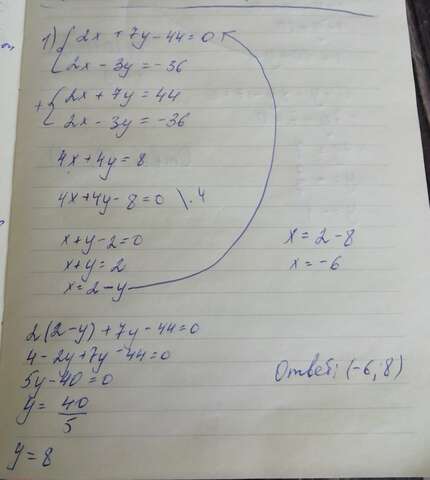 1) { 2x + 7y - 44 = 0
2x - 3y = -36
+ { 2x + 7y = 44
2x - 3y = -36
4x + 4y = 8
4x + 4y - 8 = 0 \ . 4
x + y - 2 = 0
x + y = 2
x = 2 - y
2(2 - y) + 7y - 44 = 0
4 - 2y + 7y - 44 = 0
5y - 40 = 0
y = 40/5
y = 8
x = 2 - 8
x = -6
Ответ: (-6; 8)